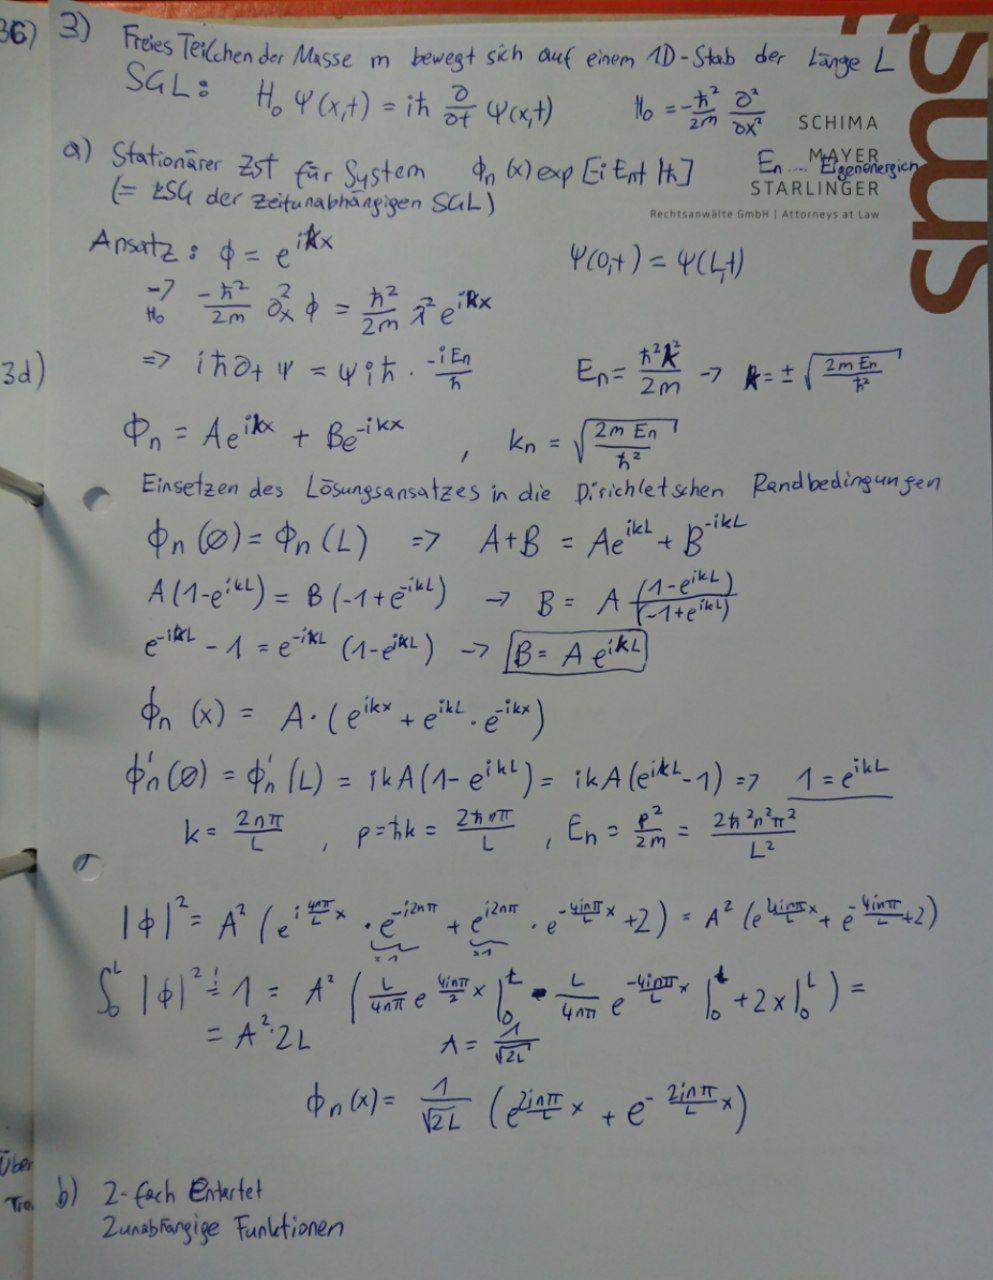 36) 3) Freies Teilchen der Masse m bewegt sich auf einem 1D-Stab der Länge L
SGL: H₀ Ψ(x,t) = iħ ∂/∂t Ψ(x,t)   H₀ = -ħ²/2m ∂²/∂x²
SCHIMA
MAYER
STARLINGER
Rechtsanwälte GmbH | Attorneys at Law
sms
a) Stationärer Zst für System ϕn (x) exp [-i Ent/ħ]   En .... Eigenenergien
(= LSG der zeitunabhängigen SGL)
Ansatz: ϕ = e^{ikx}   Ψ(0,t) = Ψ(L,t)
→ H₀ -ħ²/2m ∂x² ϕ = ħ²/2m λ² e^{ikx}
3d)
=> iħ∂t Ψ = Ψ iħ · -iEn/ħ   En = ħ²k²/2m → k = ± √(2m En/ħ²)
ϕn = Ae^{ikx} + Be^{-ikx} , kn = √(2m En/ħ²)
Einsetzen des Lösungsansatzes in die Dirichletschen Randbedingungen
ϕn (0) = ϕn (L) => A+B = Ae^{ikL} + B^{-ikL}
A(1-e^{ikL}) = B(-1+e^{-ikL}) → B = A (1-e^{ikL})/(-1+e^{ikL})
e^{-ikL} - 1 = e^{-ikL} (1-e^{ikL}) → B = A e^{ikL}
ϕn (x) = A·(e^{ikx} + e^{ikL} · e^{-ikx})
ϕ'n (0) = ϕ'n (L) = ikA(1-e^{ikL}) = ikA(e^{ikL}-1) => 1 = e^{ikL}
k = 2nπ/L , p = ħk = 2ħnπ/L , En = p²/2m = 2ħ²n²π²/L²
|ϕ|² = A² (e^{i 4nπ/L x} · e^{-i2nπ} + e^{i2nπ} · e^{-4inπ/L x} + 2) = A² (e^{4inπ/L x} + e^{-4inπ/L} + 2)
=1 =1
∫₀^L |ϕ|² != 1 = A² (L/4nπ e^{4inπ/2 x} |₀^L - L/4nπ e^{-4inπ/L x} |₀^L + 2x|₀^L) =
= A²·2L   A = 1/√2L
ϕn (x) = 1/√2L (e^{2inπ/L x} + e^{-2inπ/L x})
Über
Tra.
b) 2-fach Entartet
2unabhängige Funktionen